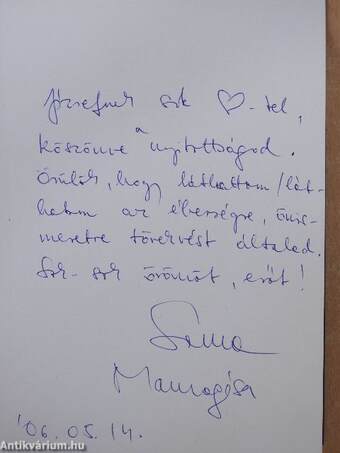 Józsefnek sok ♡-tel,
köszönve a nyitottságod.
Örülök, hogy láthattam/lát-
hatom az éberségre, önis-
meretre törekvést általad.
Sok-sok örömöt, erőt!
Soma
Mamagésa
'06.05.14.
Antikvárium.hu